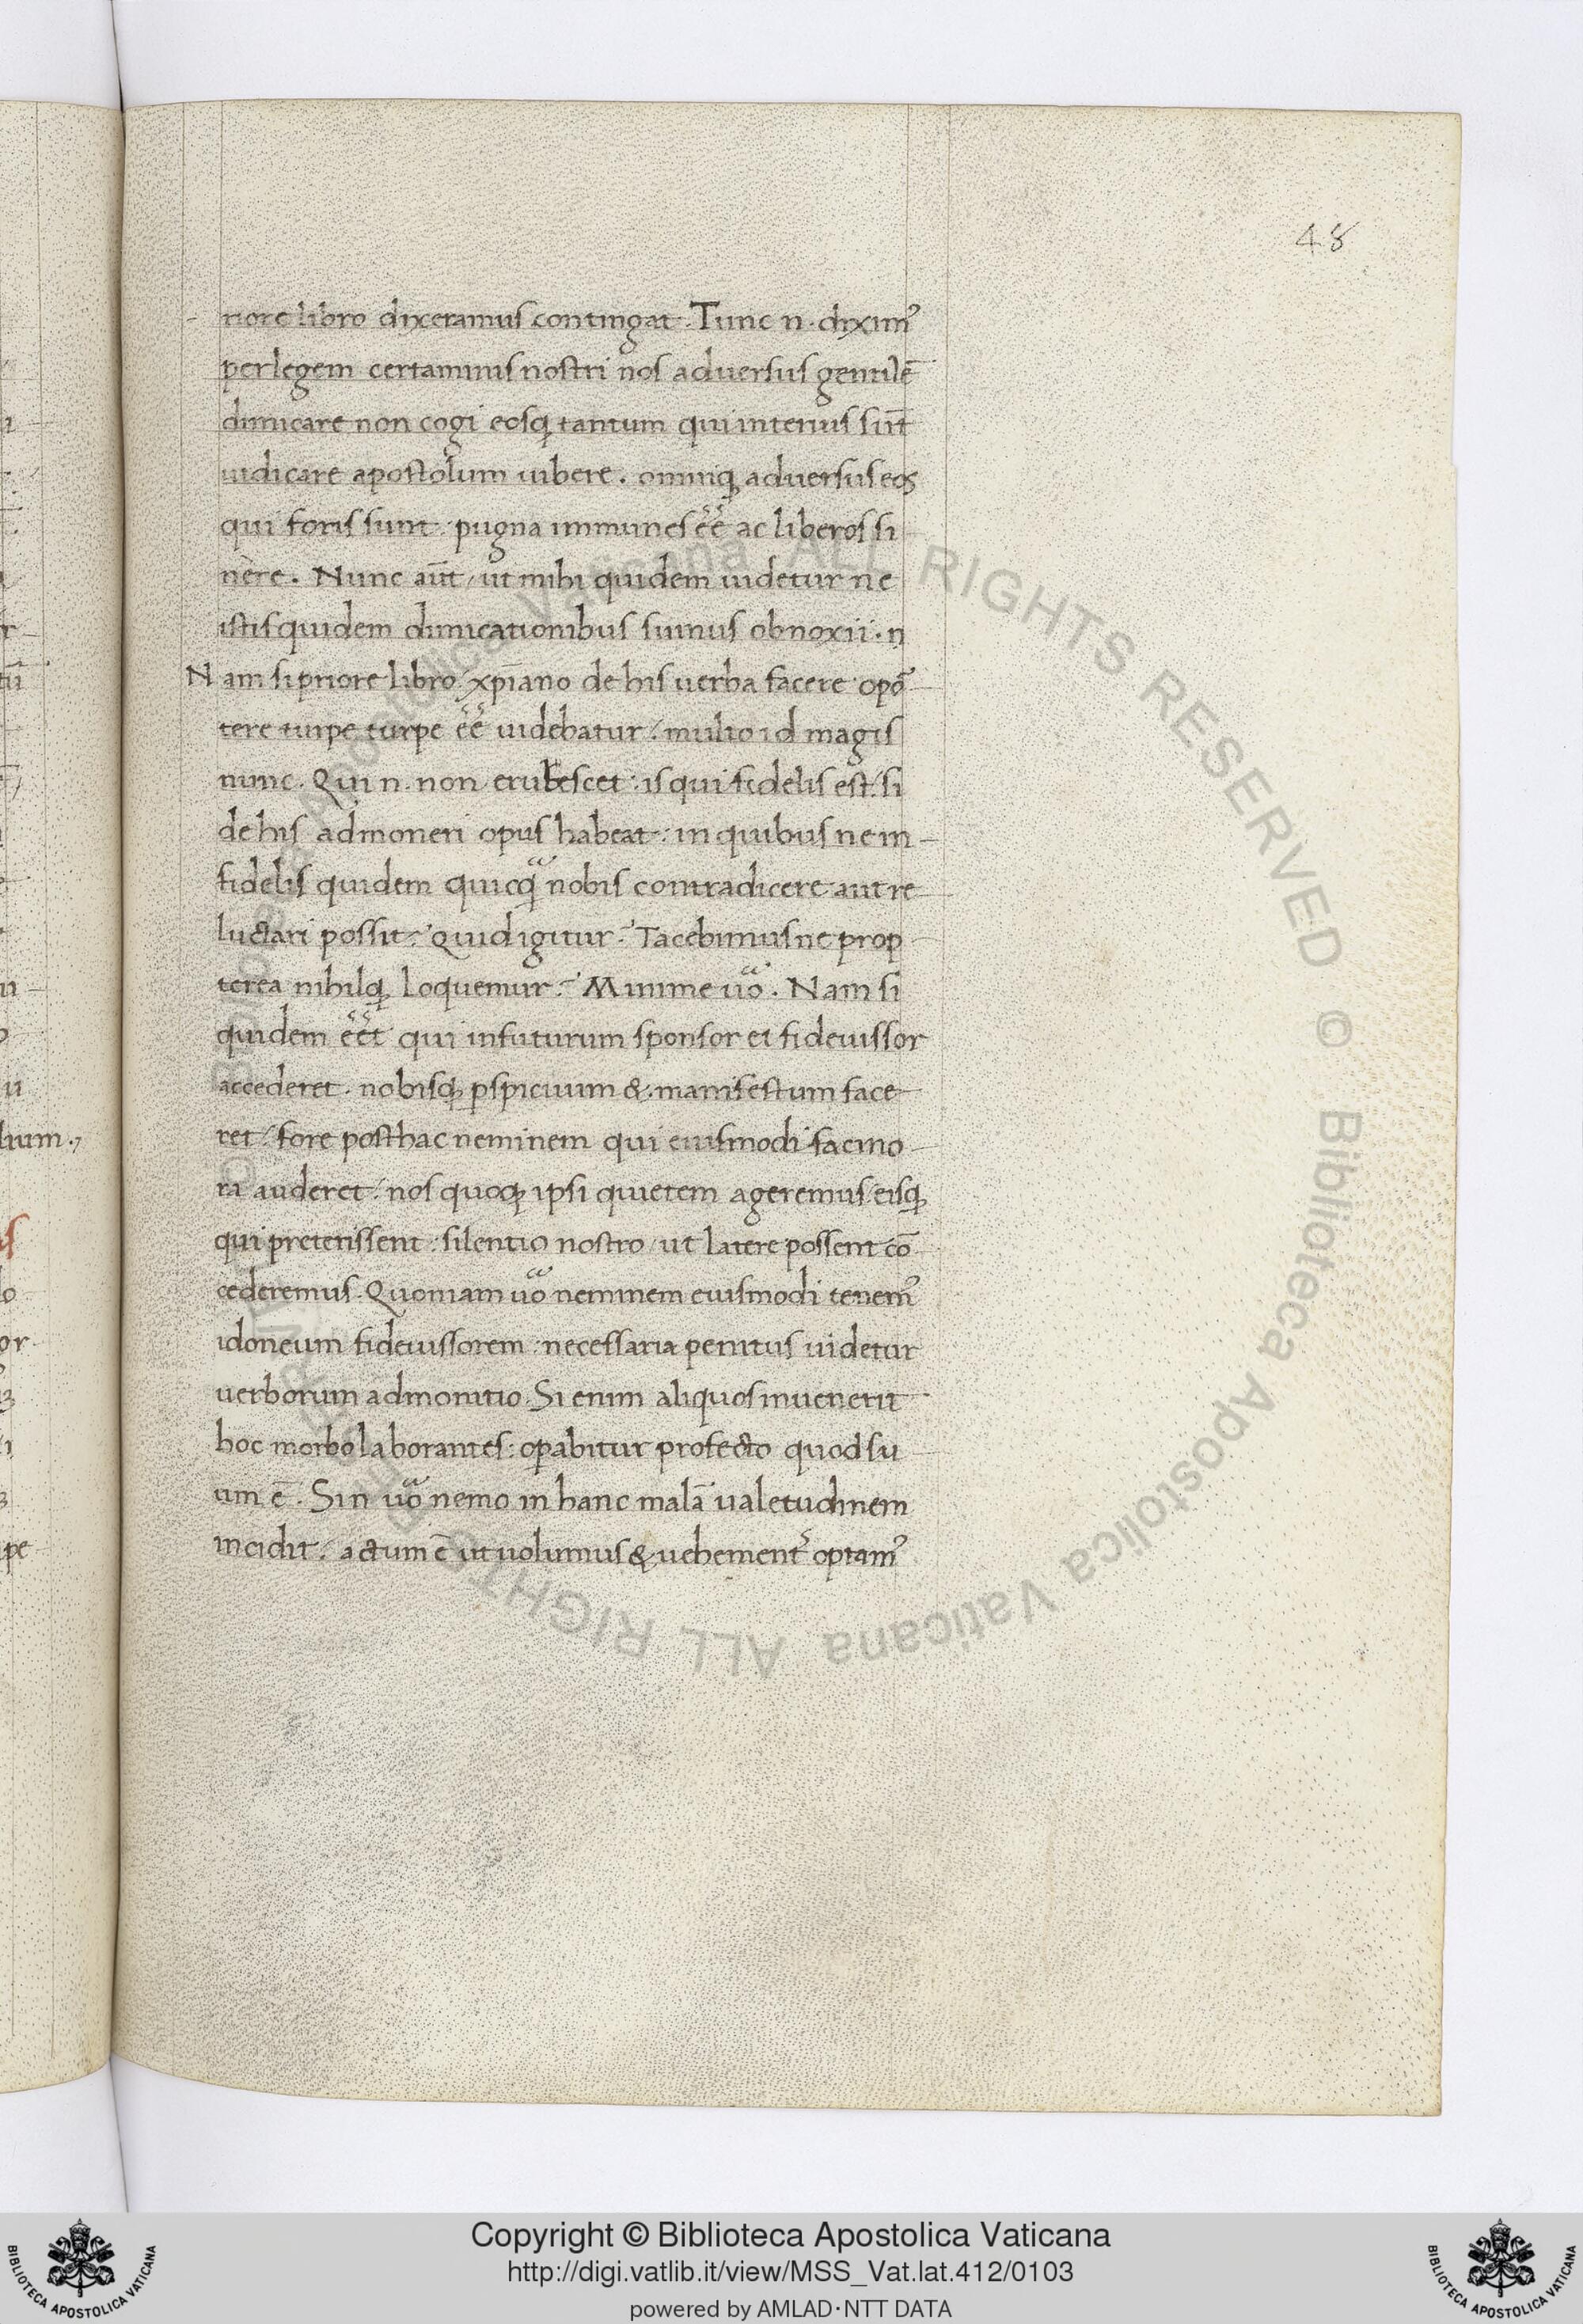 48
riore libro dixeramus contingat. Tunc n. diximꝰ
per legem certaminis nostri nos adversus gentilē
dimicare non cogi eosqꝫ tantum qui interius sūt
iudicare apostolum iubere. omniqꝫ adversus eos
qui foris sunt: pugna immunes ee ac liberos si
nere. Nunc aūt, ut mihi quidem uidetur ne
istis quidem dimicationibus sumus obnoxii. n
Nam si priore libro xp̄iano de his uerba facere opō
tere turpe turpe ee uidebatur, multo id magis
nunc. Qui n. non erubescet: is qui fidelis est, si
de his admoneri opus habeat: in quibus ne in
fidelis quidem quicqͣ nobis contradicere aut re
luctari possit. Quid igitur? Tacebimus ne prop
terea nihilqꝫ loquemur? Minime uͦo. Nam si
quidem eet qui in futurum sponsor et fideiussor
accederet. nobisqꝫ ꝑspicuum &. manifestum face
ret, fore posthac neminem qui eiusmodi facino
ra auderet, nos quoqꝫ ipsi quietem ageremus, eisqꝫ
qui preterissent: silentio nostro, ut latere possent cō
cederemus. Quoniam uo neminem eiusmodi tenemꝰ
idoneum fideiussorem: necessaria penitus uidetur
uerborum admonitio. Si enim aliquos inuenerit
hoc morbo laborantes: oꝑabitur profecto quod su
um ē. Sin uo nemo in hanc malā ualetudinem
incidit, actum ē ut uolumus & uehement᷑ optamꝰ
Copyright © Biblioteca Apostolica Vaticana
http://digi.vatlib.it/view/MSS_Vat.lat.412/0103
powered by AMLAD·NTT DATA
BIBLIOTECA APOSTOLICA VATICANA
BIBLIOTECA APOSTOLICA VATICANA
© Biblioteca Apostolica Vaticana ALL RIGHTS RESERVED © Biblioteca Apostolica Vaticana ALL RIGHTS RESERVED